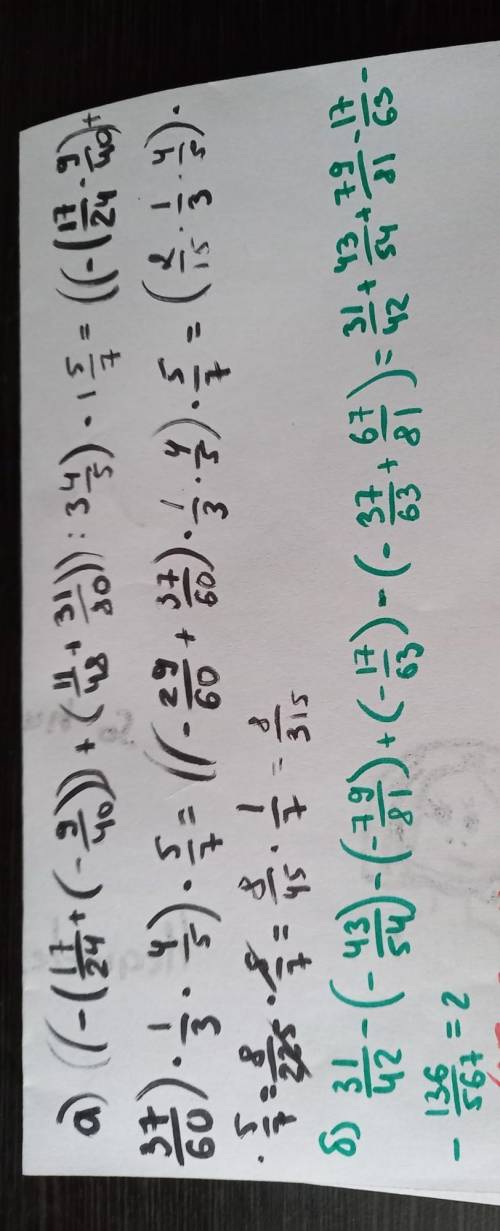 а) ((-(17/24+(-9/40))+(11/48+31/80)):3 4/5)·1 5/7=((-(17/24-9/40)+
37/60)·1/3·4/5)·5/7=((-29/60+37/60)·1/3·4/5)·5/7=(2/15·1/3·4/5)·
·5/7=8/225·5/7=8/45·1/7=8/315
б) 31/42-(-43/54)-(-79/81)+(-17/63)-(-37/63+67/81)=31/42+43/54+79/81-17/63-
-136/567=2